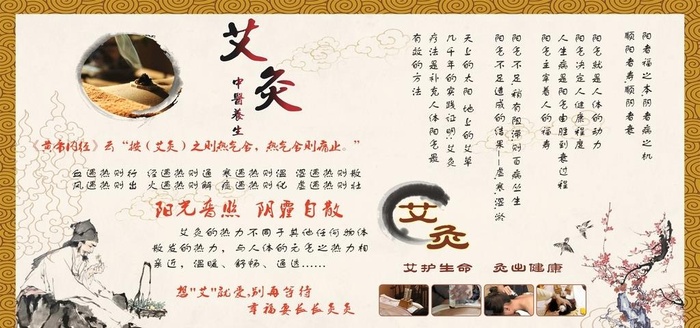 艾灸
中醫養生
《黄帝内经》云“按（艾灸）之则热气至，热气至则痛止。”
血遇热则行 经遇热则通 寒遇热则温 湿遇热则散
风遇热则出 火遇热则解 痰遇热则化 虚遇热则壮
阳光普照 阴霾自散
艾灸的热力不同于其他任何物体
散发的热力，与人体的元气之热力相
亲近，温暖、舒畅、通透……
想“艾”就爱,别再等待
幸福要长长灸灸
阳者福之本,阴者病之机
顺阳者寿,顺阴者衰
阳气就是人体的动力
阳气决定人健康程度
人生病是阳气由胜到衰过程
阳气主宰着人的福寿
阳气不足,稍有阻滞则百病丛生
阳气不足造成的结果--虚、寒、湿、淤
天上的太阳 地上的艾草
几千年的实践证明:艾灸
疗法是补充人体阳气最
有效的方法
艾灸
艾护生命 灸出健康